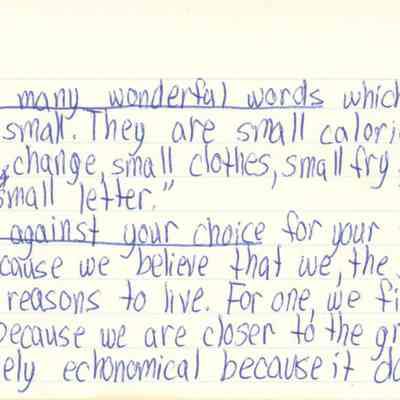 many wonderful words which
small. They are small calori
change, small clothes, small fry,
small letter."
against your choice for your
cause we believe that we, the
reasons to live. For one, we fi
because we are closer to the gr
ely echonomical because it do